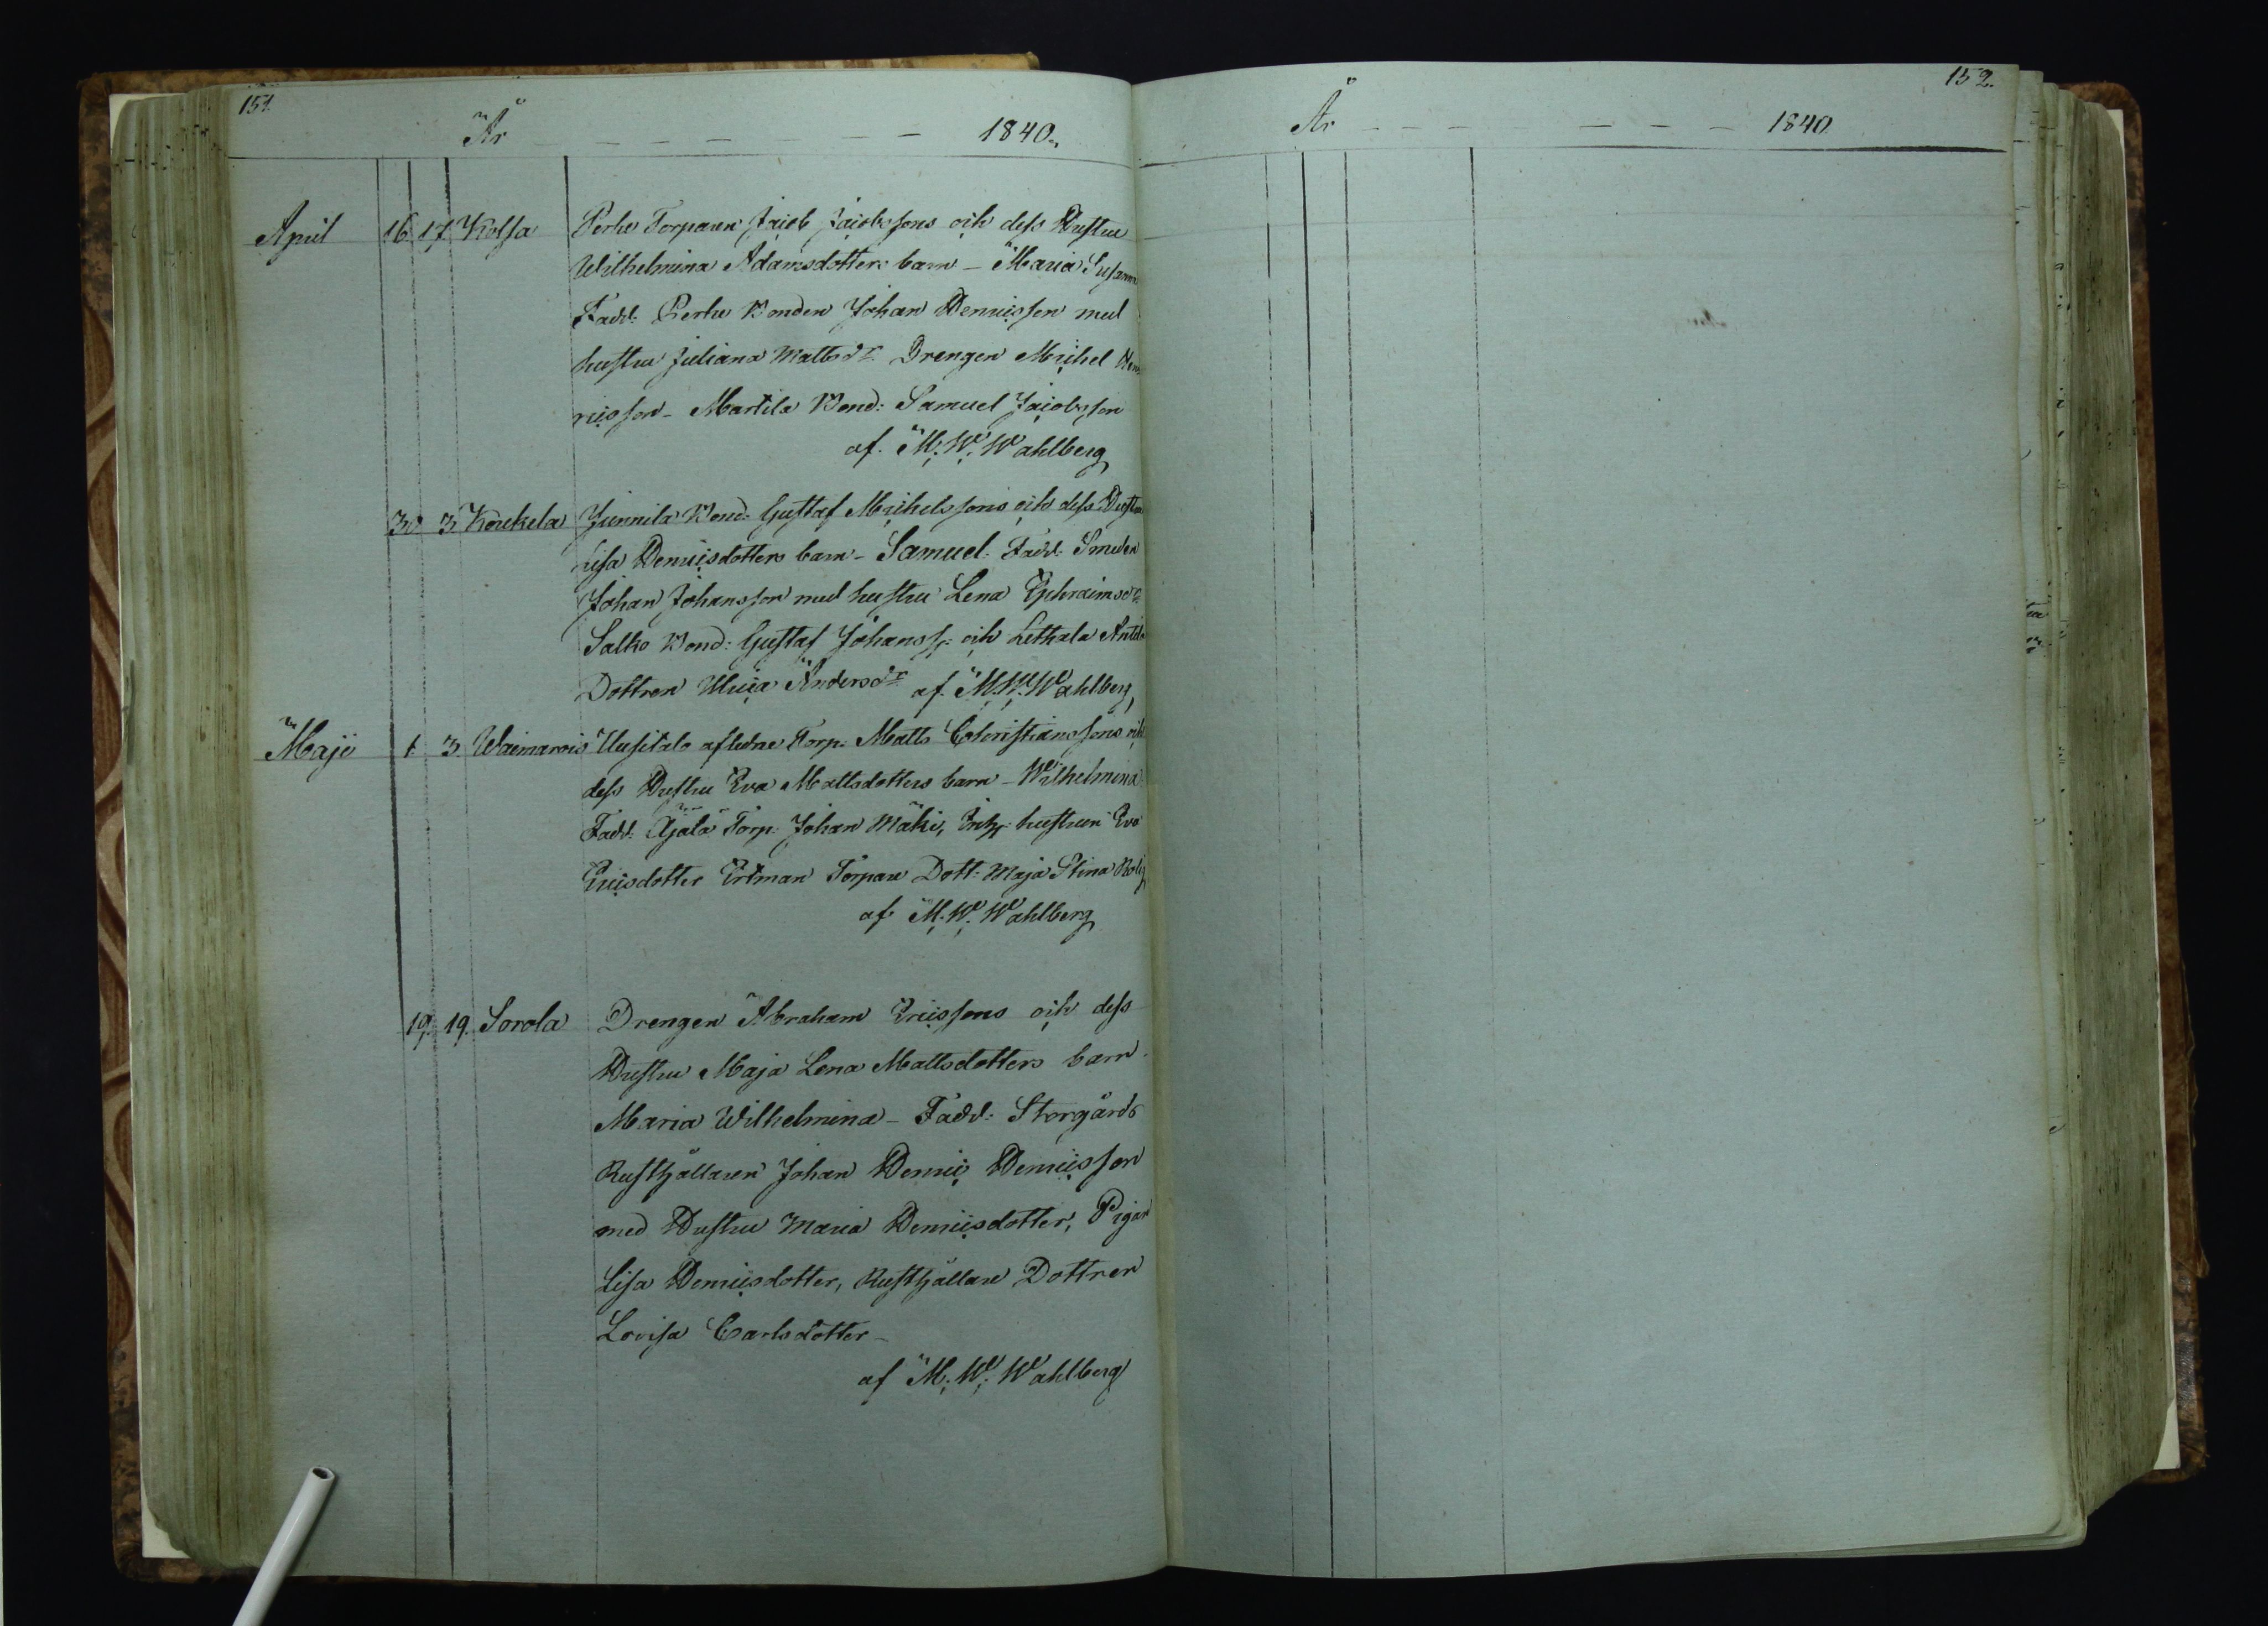 151.
År - - - - - - 1840.
April 16 17 Kolsa Perho Torparen Jacob Jacobssons och dess Hustru
Wilhelmina Adamsdotters barn - Maria Susanna
Fadd: Perho Bonden Johan Henricsson med
hustru Juliana Mattsdr. Drengen Michel Hen
ricsson - Martila Bond: Samuel Jacobsson
af M: W: Wahlberg
30 3 Koukela Junnila Bond: Gustaf Michelssons och dess Hustru
Lisa Henricsdotters barn - Samuel. Fadd: Smeden
Johan Johansson med hustru Lena Ephraimsdr.
Salko Bond: Gustaf Johanss: och Lethala Antila
Dottren Ulrica Andersdr. af M: W: Wahlberg
Maji 1 3 Wainarois Uusitalo aflidne Torp: Matts Christianssons och
dess Hustru Eva Mattsdotters barn - Wilhelmina
Fadd: Äjälä Torp: Johan Mäki, hustrun Eva
Ericsdotter Ertman Torpare Dott: Maja Stina
af M: W: Wahlberg
19. 19. Sorola Drengen Abraham Ericssons och dess
Hustru Maja Lena Mattsdotters barn
Maria Wilhelmina - Fadd: Storgårds
Rusthållaren Johan Henric Henricsson
med Hustru Maria Henricsdotter, Pigan
Lisa Henricsdotter, Rusthållare Dottren
Lovisa Carlsdotter -
af M: W: Wahlberg
152.
År - - - - - - 1840